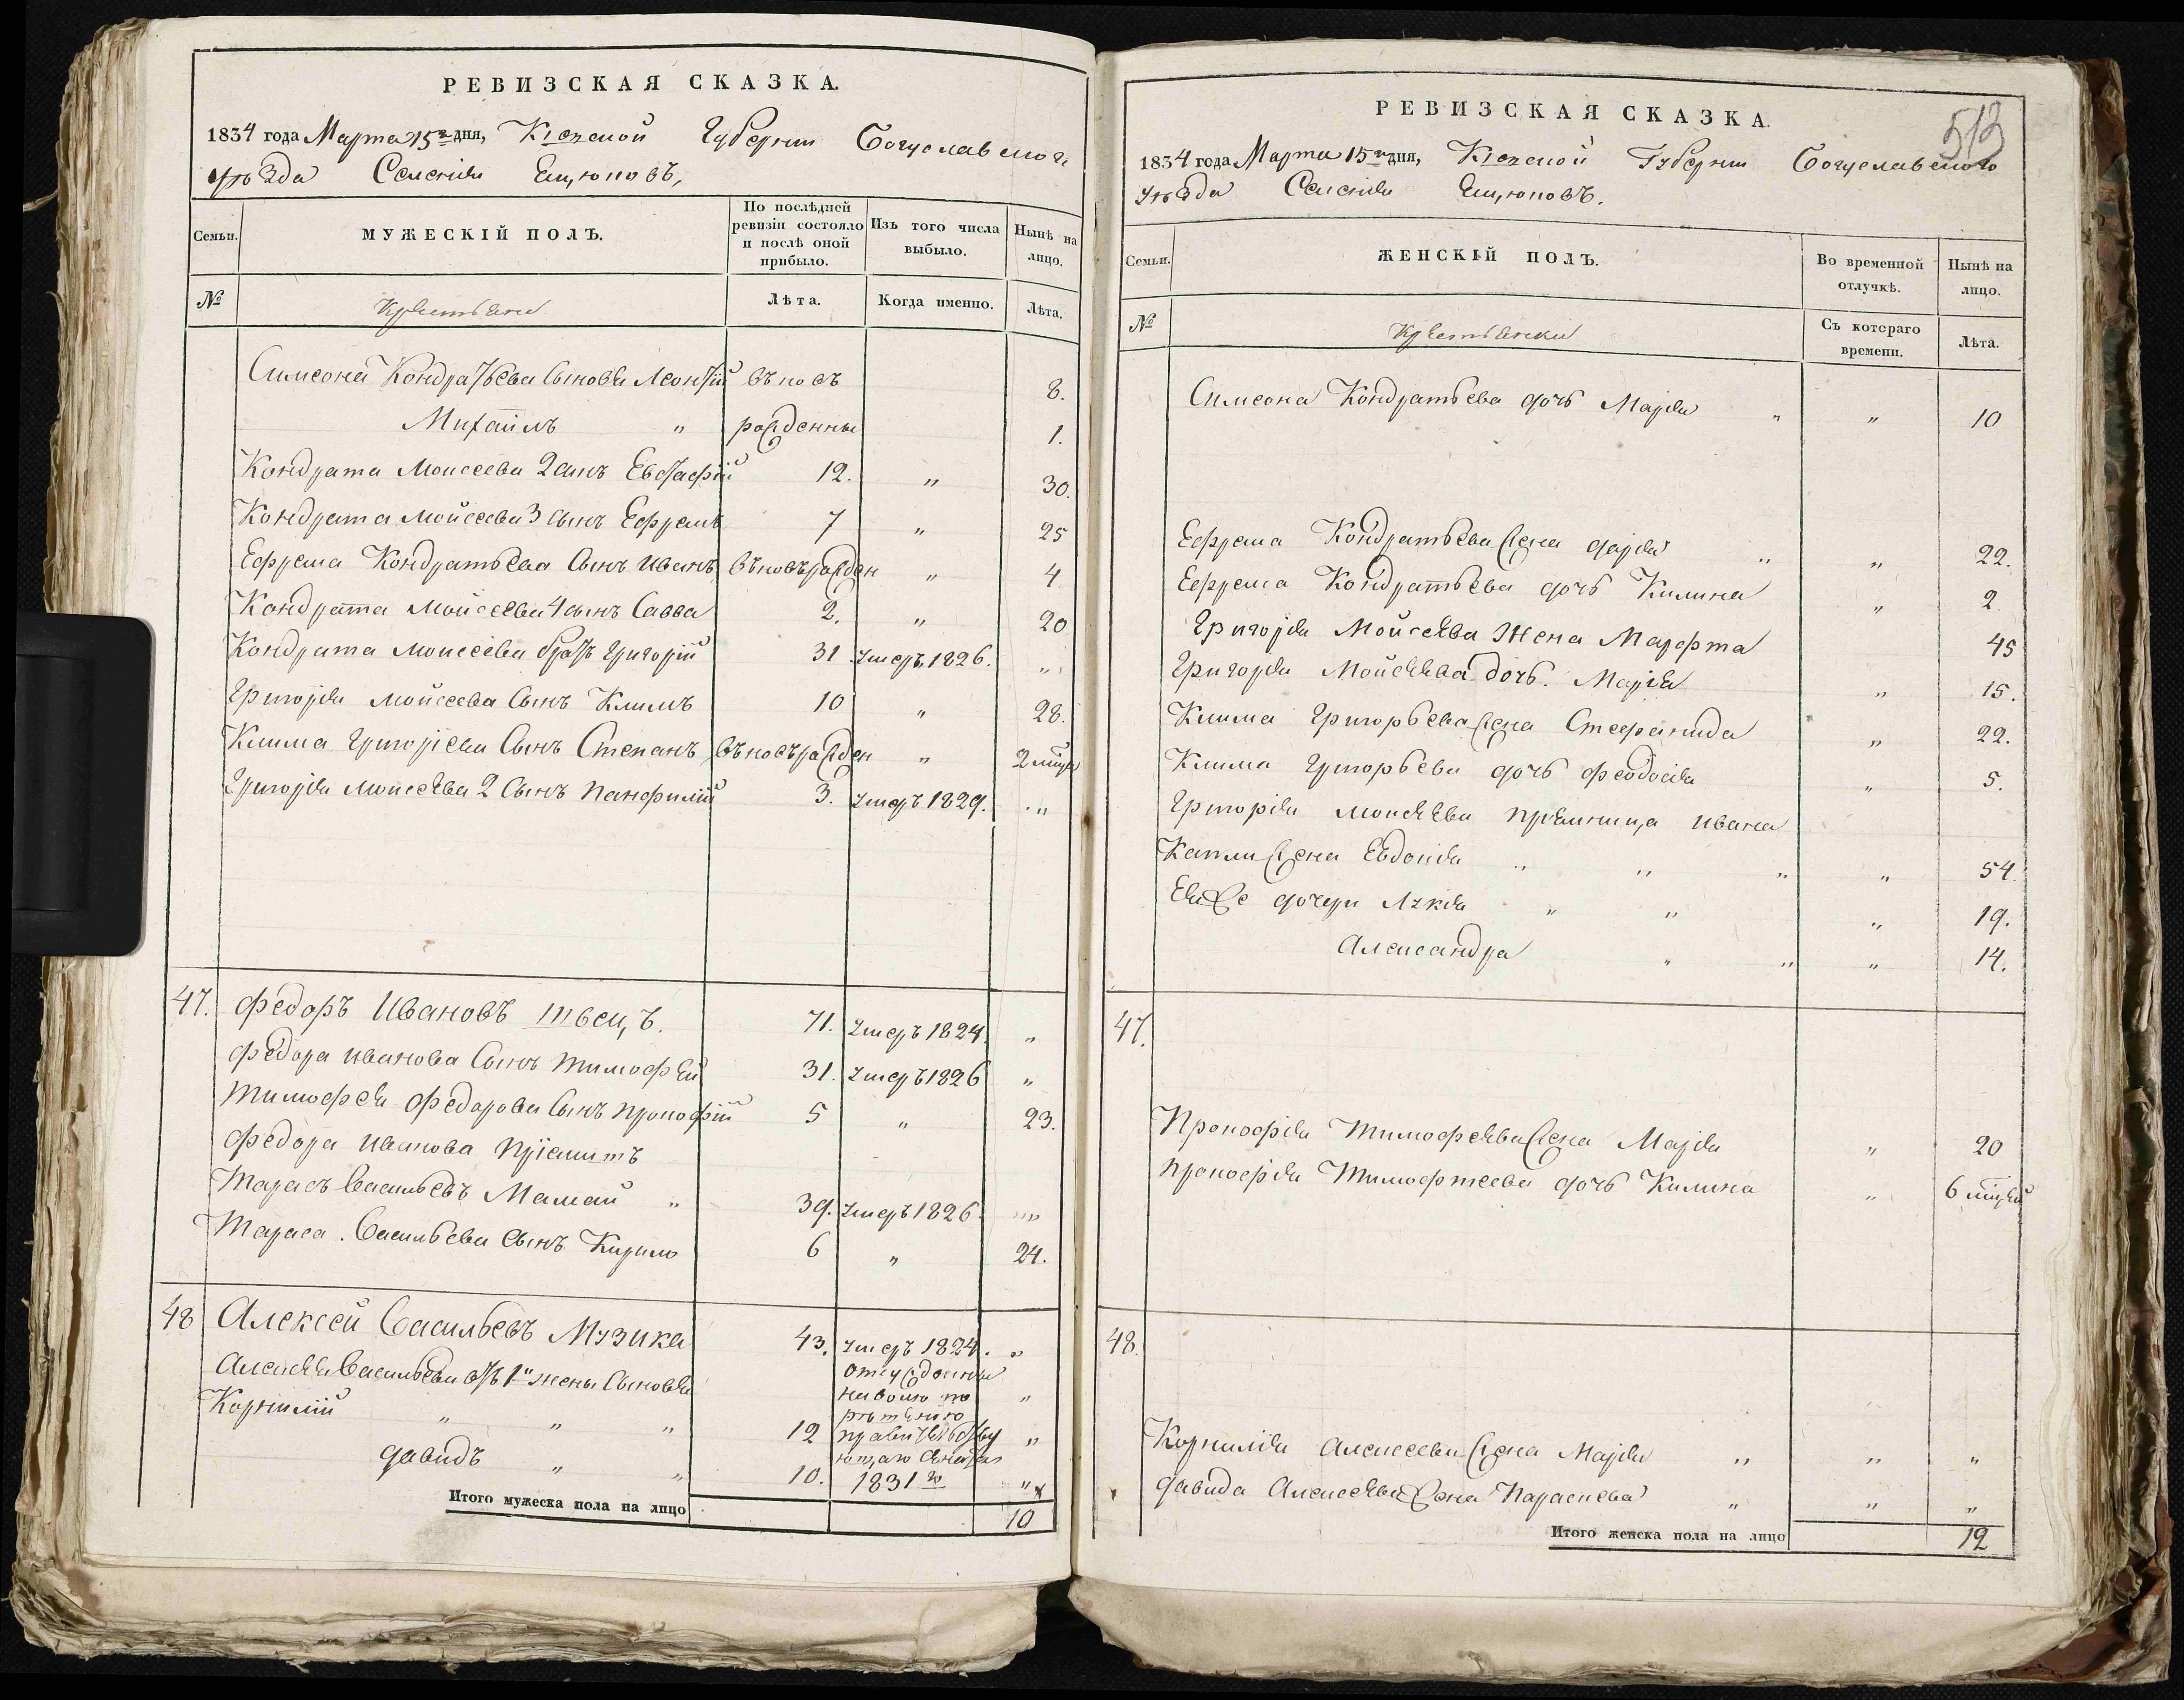 РЕВИЗСКАЯ СКАЗКА.
1834 года Марта 15го дня, Кіевской Губерніи Богуславского
уѣзда Селенія Емцюповъ,
Семьи.
МУЖЕСКІЙ ПОЛЪ.
По послѣдней ревизіи состояло и послѣ оной прибыло.
Изъ того числа выбыло.
Нынѣ на лицо.
№
Крестьяне
Лѣта.
Когда именно.
Лѣта.
Симеона Кондратьева сыновья Леонтій вьновь 8.
Михаилъ " рожденны 1.
Кондрата Моисеева 2 сынъ Евстафій 12. " 30.
Кондрата Мойсеева 3 сынъ Ефремъ 7 " 25
Ефрема Кондратьева Сынъ Иванъ вьновьрожден " 4
Кондрата Мойсеева 4 сынъ Савва 2. " 20
Кондрата Моисеева братъ Григорій 31 умеръ 1826. "
Григорія Мойсеева Сынъ Климъ 10 " 28.
Клима Григоріева Сынъ Степанъ вьновьрожден " 2 мѣця
Григорія Моисеева 2 Сынъ Панфилій 3. умеръ 1829. "
47. Федоръ Ивановъ Швець. 71. умеръ 1824. "
Федора Иванова Сынъ Тимофей 31. умеръ 1826 "
Тимофея Федорова Сынъ Прокофій 5 " 23.
Федора Иванова пріемишъ
Тарасъ Васильевъ Мамай " 39. умеръ 1826. "
Тараса Васильева Сынъ Кирило 6 " 24.
48 Алексей Васильевъ Музика 43. умеръ 1824. "
Алексея Васильева отъ 1й жены Сыновья отсуждены
на волю по "
рѣшенію
Корнилій " " " 12 правительству "
ющаго Сената
Давидъ " " 10. 1831го "
Итого мужеска пола на лицо 10
513
РЕВИЗСКАЯ СКАЗКА.
1834 года Марта 15го дня, Кіевской Губерніи Богуславского
Уѣзда Селенія Емцюповъ.
Семьи.
ЖЕНСКІЙ ПОЛЪ.
Во временной отлучкѣ.
Нынѣ на лицо.
№
Крестьянки
Съ котораго времени.
Лѣта.
Симеона Кондратьева дочь Марія " " 10
Ефрема Кондратьева жена Дарія " " 22.
Ефрема Кондратьева дочь Килина " 2
Григорія Мойсеева Жена Марфта 45
Григорія Мойсеева дочь Марія " 15.
Клима Григорьева жена Стефанида " 22.
Клима Григорьева дочь Феодосія " 5.
Григорія Моисеева пріемница Ивана
Капли жена Евдокія " " " " 54.
Ея же дочери Лукія " " " 19.
Александра " " " 14.
47.
Прокофія Тимофеева жена Марія " 20
Прокофія Тимофтеева дочь Килина " 6 мѣцей
48.
Корнилія Алексеева жена Марія " " "
Давида Алексеева жена Параскева " " "
Итого женска пола на лицо 12